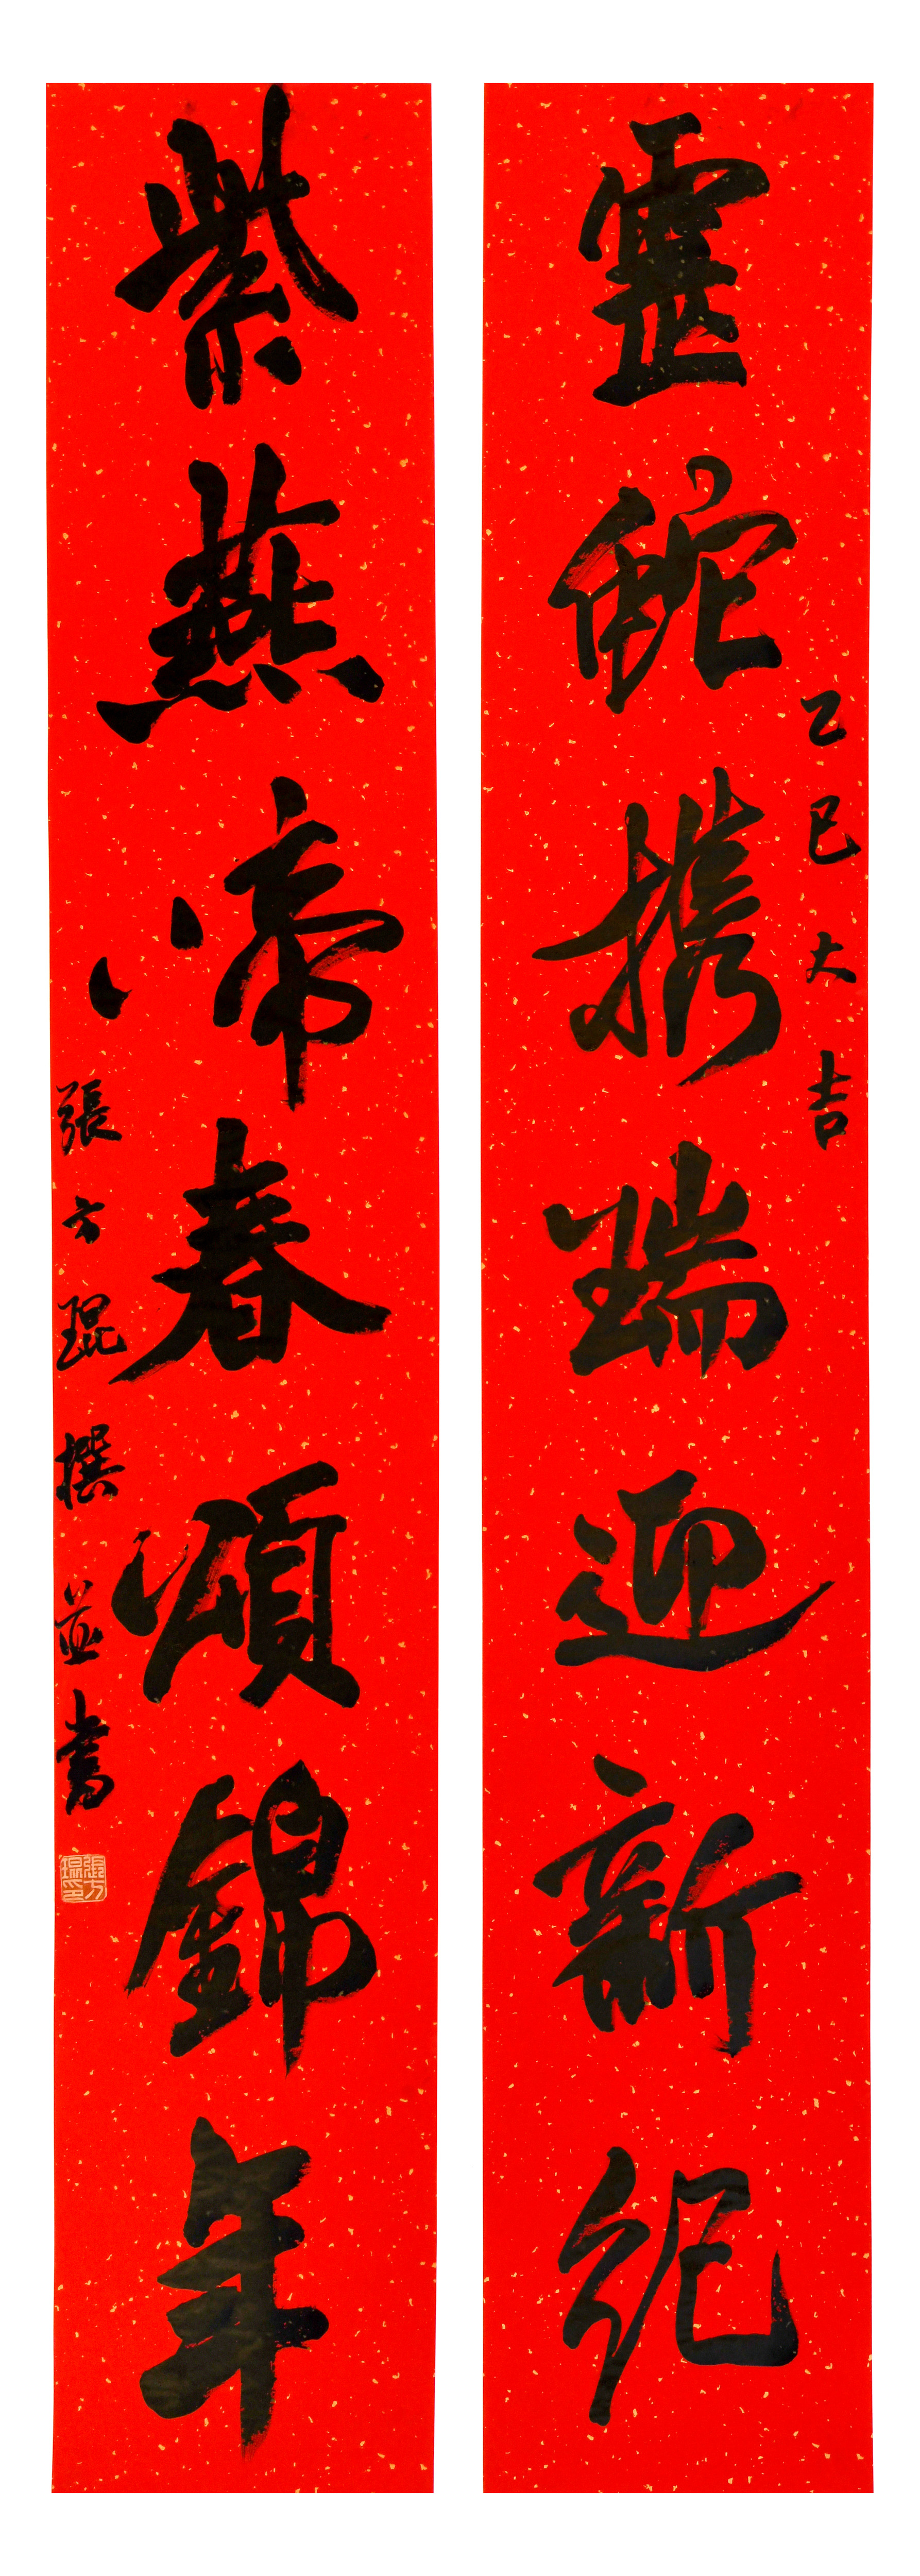 靈蛇携瑞迎新紀
乙巳大吉
紫燕啼春頌錦年
張方琨撰並書
張方琨印